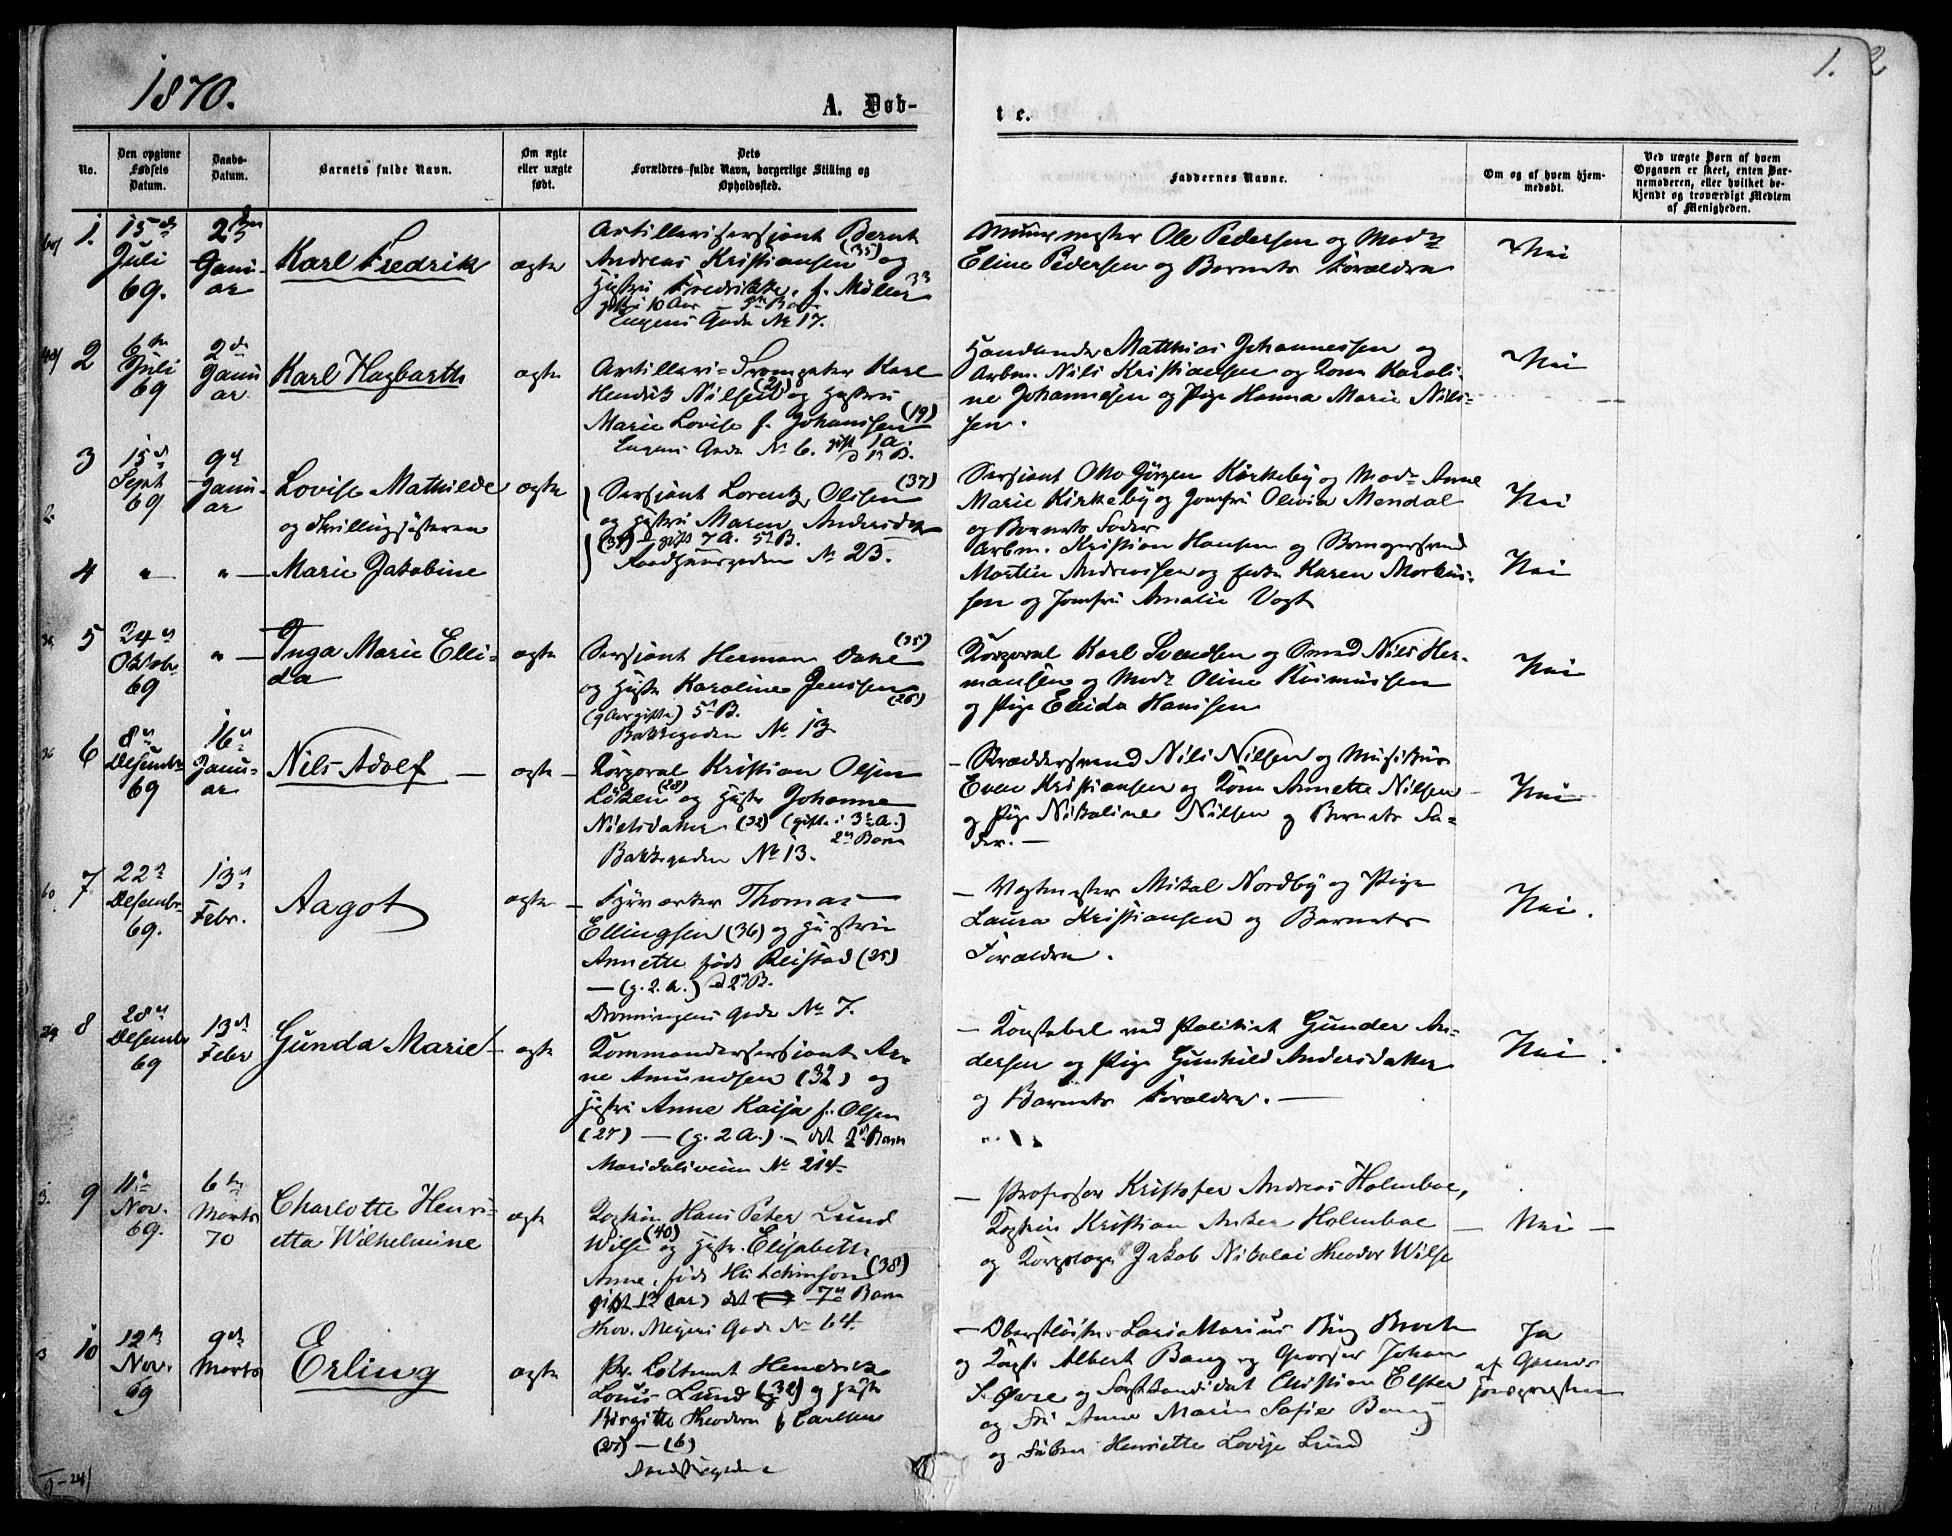 1870.
A. Døb-
t e.
1. 2
No.
Den opgivne Fødsels Datum.
Daabs-Datum.
Barnets fulde Navn.
Om ægte eller uægte født.
Dets Forældres fulde Navn, borgerlige Stilling og Opholdssted.
Faddernes Navne.
Om og af hvem hjemmedøbt.
Ved uægte Børn af hvem Opgaven er skeet, enten Barnemoderen, eller hvilket bekjendt og troværdigt Medlem af Menigheden.
1.
15de Juli 69.
2den Januar
Karl Fredrik
ægte
Artillerisersjant Bernt
Andreas Kristiansen (35) og
Hustru Fredrikke f. Møller 33
gift i 10 Aar
Eugens Gade No 17.
Murmester Ole Pedersen og Mad.
Eline Pedersen og Barnets Forældre
Nei
2
6te Juli 69
2de Januar
Karl Hagbarth
ægte
Artilleri-Trompeter Karl
Henrik Nilsen (21) og Hustru
Marie Lovise f. Johansen (19)
Eugens Gade No 6. gift 1 A.
1ste B.
Handlende Matthias Johannessen og
Arbm. Nils Kristiansen og Kone Karoli-
ne Johannesen og Pige Hanna Marie Nils-
sen.
Nei
3
15de Sept 69
9de Januar
Lovise Mathilde
og Tvillingsøsteren
ægte
Sersjant Lorentz Olsen (37)
og Hustru Maren Andersdtr
gift 7 A. 5te B.
Raadhusgaden No 23.
Sersjant Otto Jørgen Kirkeby og Mad. Anne
Marie Kirkeby og Jomfru Olivia Mendal
og Barnets Fader
Nei
4
" — " —
Marie Jakobine
Arbm. Kristian Hansen og
Martin Andreassen og Karen Martins-
sen og Jomfru Amalie Vogt
Nei
5
24de Oktober 69
" —
Inga Marie Elli-
da
ægte
Sersjant Herman Dahl (35)
og Hustru Karoline Jensen (26)
(9 Aar gifte) 5te B.
Bakkegaden No 13
Korporal Karl Svendsen og Smed Nils Her-
mansen og Mad. Oline Rasmussen
og Pige Ellida Hansen
Nei
6
8de Desember 69
16de Januar
Nils Adolf —
ægte —
Korporal Kristian Olsen
Løken (28) og Hustru Johanne
Nielsdatter (32) (gifte i 3 A.)
2det Barn
Bakkegaden No 13.
— Skræddersvend Nils Nilsen og Musikus
Even Kristiansen og Kone Annette Nilsen
og Pige Nikoline Nilsen og Barnets Fa-
der. —
— Nei
7
22de Desember 69.
13de Febr.
Aagot
ægte —
Fyrværker Thomas
Ellingsen (36) og Hustru
Annette født Reistad (25)
— (g. 2. A.) 2det B.
Dronningens Gade No 7.
— Vagtmester Mikal Nordby og Pige
Laura Kristiansen og Barnets
Forældre.
Nei.
8
28de Desember 69
13de Febr
Gunda Marie —
ægte
Kommandersersjant Ar-
ne Amundsen (32) og
Hustru Anne Kaisa f. Olsen
(27) — (g. 2 A.) — det 2det Barn
Maridalsveien No 214.
— Konstabel ved Politiet Gunder An-
dersen og Pige Gunhild Andersdatter
og Barnets Forældre. —
Nei
9
11te Nov. 69.
6te Marts 70
Charlotte Henri-
etta Wilhelmine
ægte
Kaptein Hans Peter Lund
Wilse (40) og Hustru Elisabeth
Anne, født Hutchinson (38)
gift 13 Aar) det 7de Barn
Thov. Meyers Gade No 64.
— Professor Kristofer Andreas Holmboe,
Kaptein Kristian Anker Holmboe
og Korpslæge Jakob Nikolai Theodor Wilse
— Nei —
10
12te Nov. 69
9de Marts
Erling
ægte
Pr. Løitnant Hendrik
Louis Lund (32) og Hustru
Birgitte Theodora f Carlsen
— (6)
— Oberstløitn. Lars Marius Bing Broch
og Kapt. Albert Bang og Grosser Johan
S. Øvre og Forstkandidat Christian Elster
og Fru Anne Marie Sofie Bang
og Frøken Henriette Lovise Lund
Ja
af